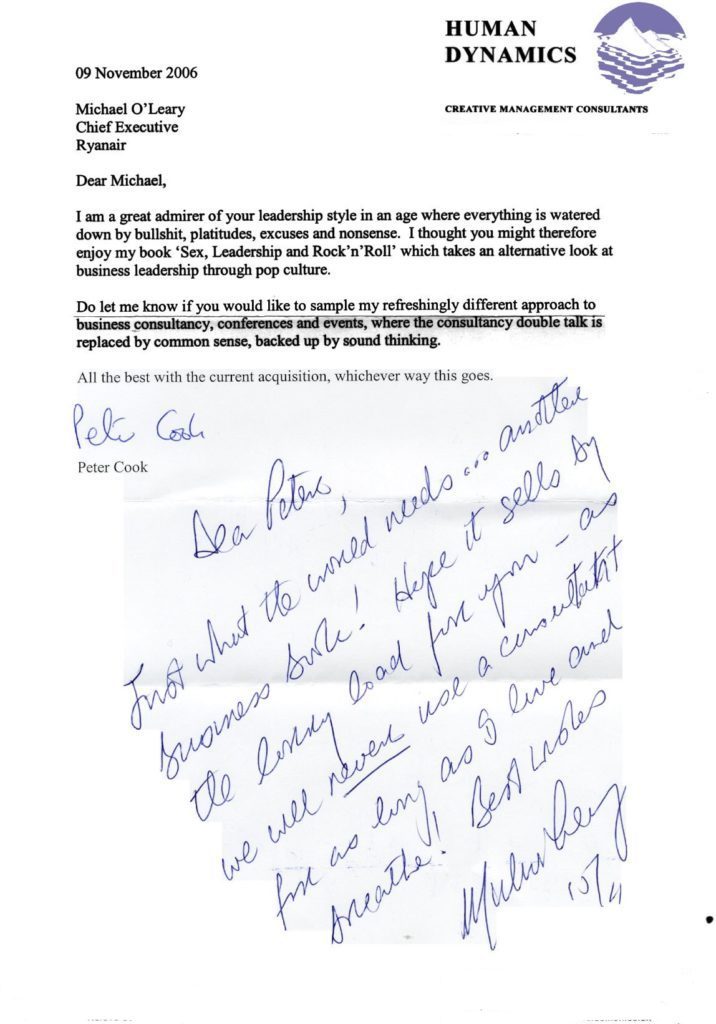 HUMAN
DYNAMICS
CREATIVE MANAGEMENT CONSULTANTS
09 November 2006
Michael O'Leary
Chief Executive
Ryanair
Dear Michael,
I am a great admirer of your leadership style in an age where everything is watered
down by bullshit, platitudes, excuses and nonsense.  I thought you might therefore
enjoy my book 'Sex, Leadership and Rock'n'Roll' which takes an alternative look at
business leadership through pop culture.
Do let me know if you would like to sample my refreshingly different approach to
business consultancy, conferences and events, where the consultancy double talk is
replaced by common sense, backed up by sound thinking.
All the best with the current acquisition, whichever way this goes.
Peter Cook
Peter Cook
Dear Peter,
Just what the world needs... another
business book! Hope it sells by
the lorry load for you - as
we will never use a consultant
for as long as I live and
breathe! Best wishes
Michael O'Leary
10/11